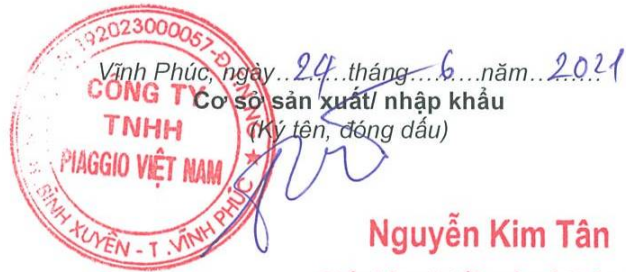 Vĩnh Phúc, ngày..24..tháng....6....năm..2021
Cơ sở sản xuất/ nhập khẩu
(Ký tên, đóng dấu)
192023000057-Đ
CÔNG TY
TNHH
PIAGGIO VIỆT NAM
BÌNH XUYÊN - T. VĨNH PHÚC
Nguyễn Kim Tân